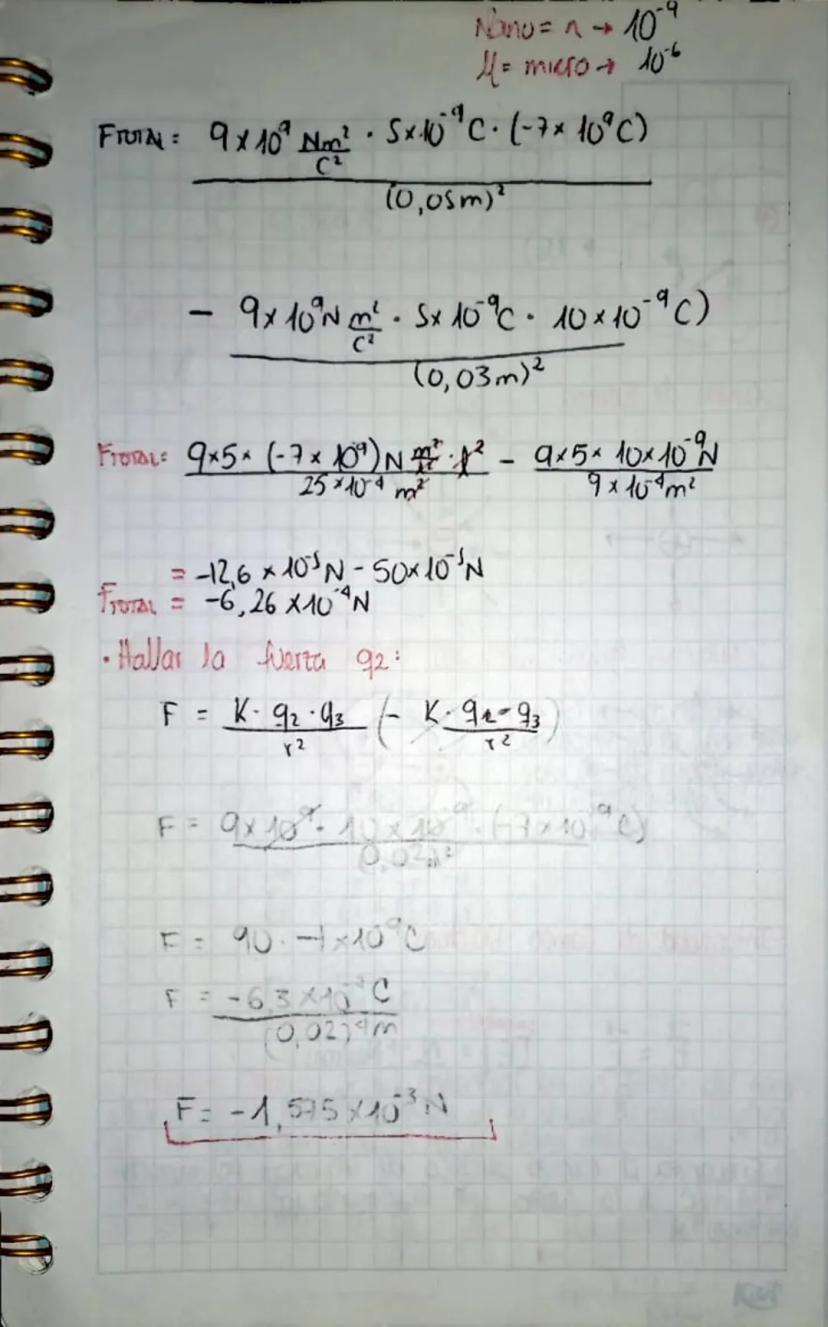 Nano = n → 10⁻⁹
μ = micro → 10⁻⁶
FTOTAL = 9 × 10⁹ Nm²/C² · 5×10⁻⁹ C · (-7 × 10⁹ C)
(0,05m)²
- 9 × 10⁹ N m²/C² · 5 × 10⁻⁹ C · 10 × 10⁻⁹ C)
(0,03m)²
FTOTAL = 9×5× (-7 × 10⁹) N m² / 25 × 10⁻⁴ m² - 9×5× 10×10⁻⁹ N / 9 × 10⁻⁴ m²
= -12,6 × 10⁻⁵ N - 50×10⁻⁵ N
FTOTAL = -6,26 × 10⁻⁴ N
· Hallar la fuerza q2:
F = K · q2 · q3 / r² (- K · q2 - q3 / r²)
F = 9 × 10⁹ · 10 × 10⁻⁹ · (-7 × 10⁻⁹ C)
0,02m²
F = 90 · -7 × 10⁹ C
F = -6,3 × 10⁻⁷ C
(0,02)⁴ m
F = -1,575 × 10⁻³ N